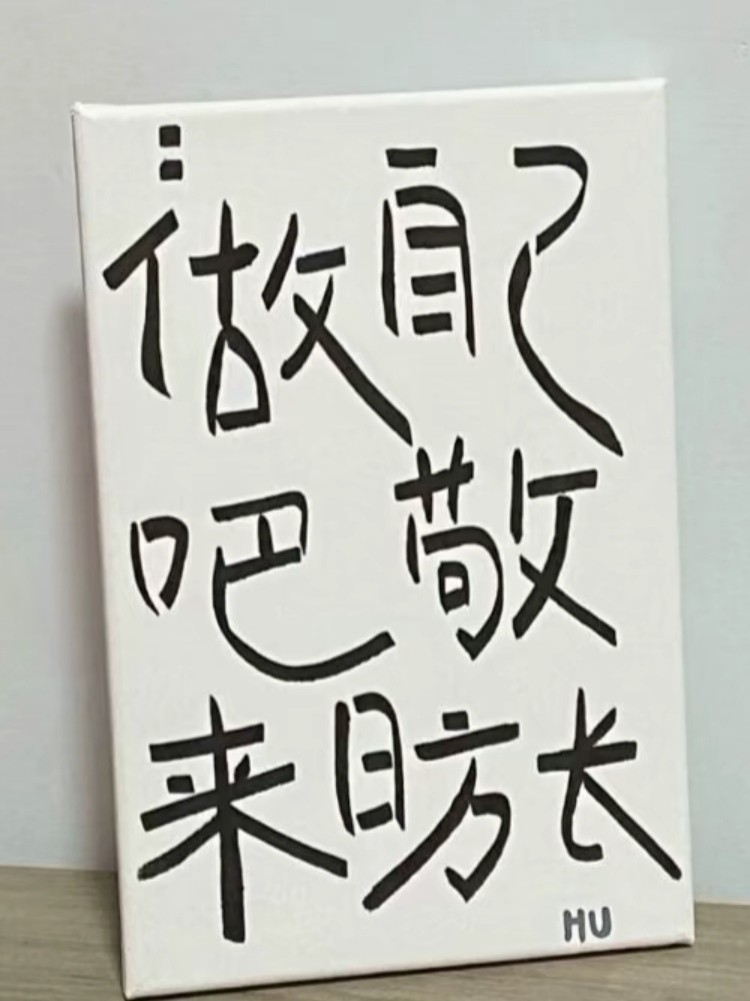 :做自己
吧敬
来日方长
HU